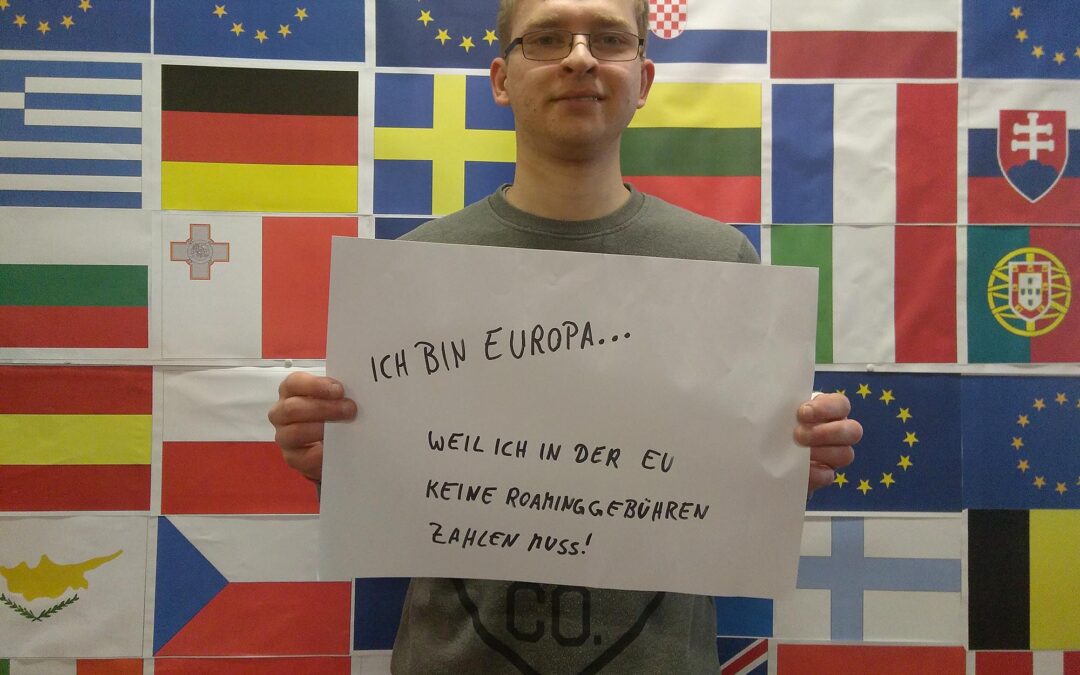 ICH BIN EUROPA...
WEIL ICH IN DER EU
KEINE ROAMINGGEBÜHREN
ZAHLEN MUSS!
CO.